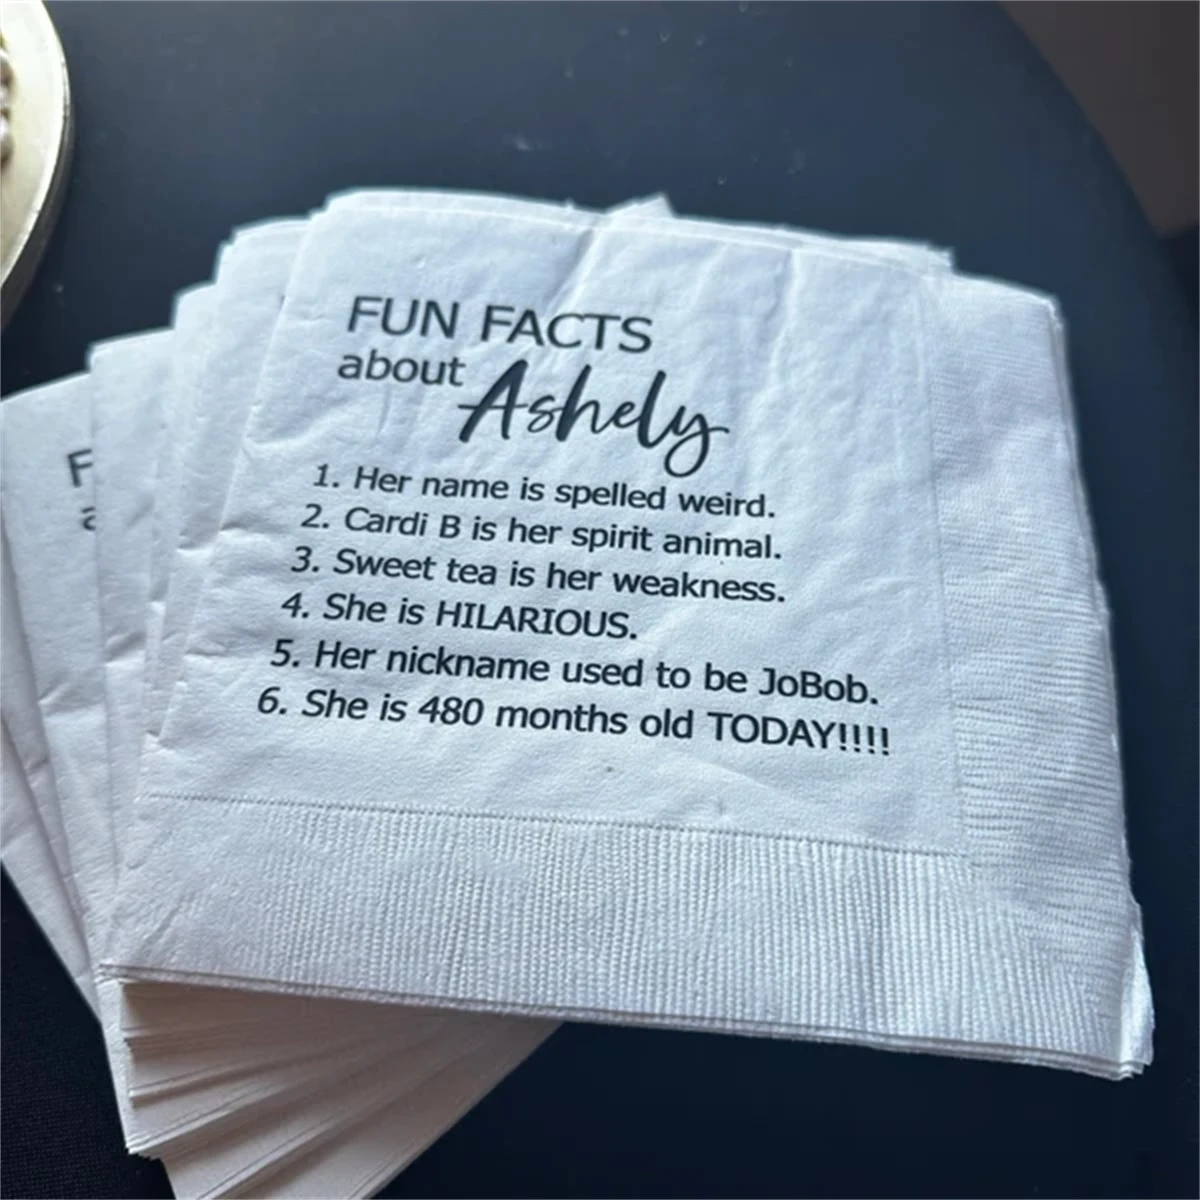 FUN FACTS
about Ashely
1. Her name is spelled weird.
2. Cardi B is her spirit animal.
3. Sweet tea is her weakness.
4. She is HILARIOUS.
5. Her nickname used to be JoBob.
6. She is 480 months old TODAY!!!!
F
a